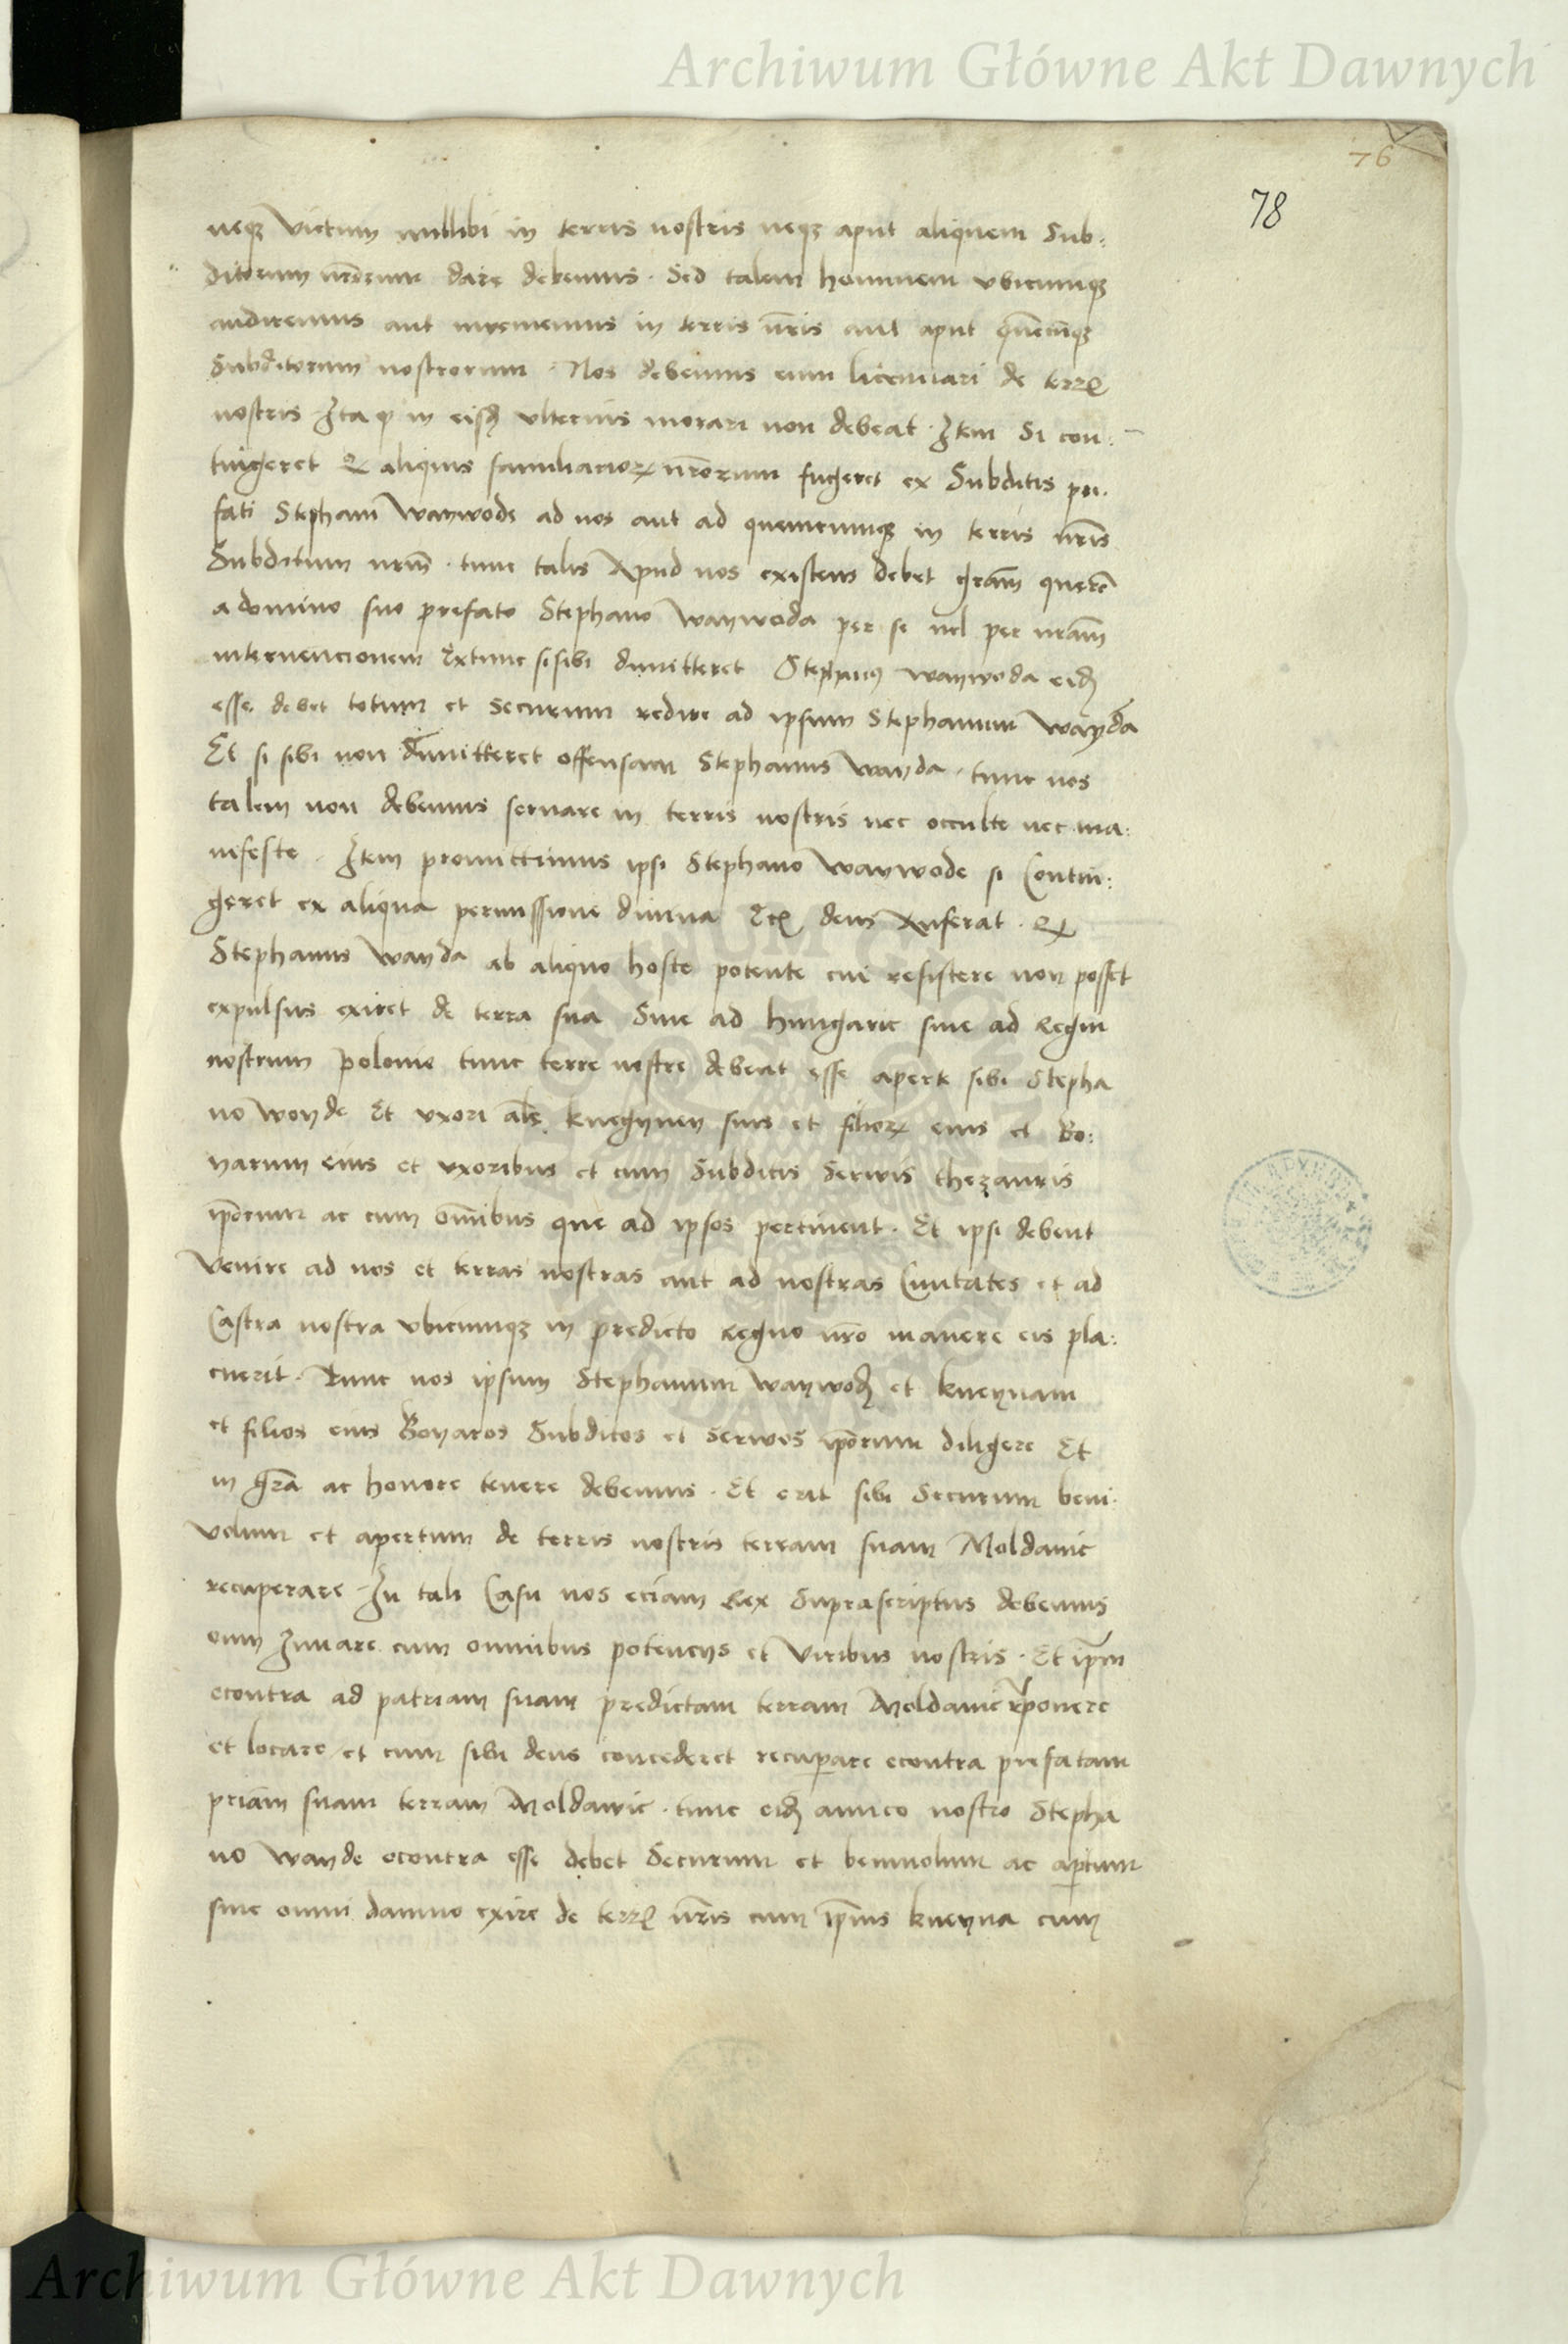 Archiwum Główne Akt Dawnych
76
78
neqꝫ victum nullibi in terris nostris neqꝫ aput aliquem Sub:
ditorum nr̄orum dare debemus. Sed talem hominem vbicumqꝫ
audiremus aut inveniemus in terris nr̄is aut aput quēcūqꝫ
Subditorum nostrorum. Nos debemus eum licenciari de terrꝭ
nostris Ita ꝙ in eisdꝫ vlterius morari non debeat. Item Si con:
tingeret ꝙ aliquis familiarioꝝ nr̄orum fugeret ex Subditis pre.
fati Stephani Waywode ad nos aut ad quemcumqꝫ in terris nr̄is
Subditum nrm̄. tunc talis Apud nos existens debet grām querē
a domino suo prefato Stephano Waywoda per se vel per nrām
intervencionem Extunc si sibi dimitteret Stephanus waywoda eidꝫ
esse debet totum et securum redire ad ipsum Stephanum Wayda
Et si sibi non dimitteret offensam Stephanus Wayda. tunc nos
talem non debemus servare in terris nostris nec occulte nec ma:
nifeste. Item promittimus ipsi Stephano Waywode si Contin:
geret ex aliqua permissione divina Etꝭ deus Auferat. ꝙ
Stephanus Wayda ab aliquo hoste potente cui resistere non posset
expulsus exiret de terra sua Sive ad hungarie sive ad Regnū
nostrum polonie tunc terre nostre debeat esse aperte sibi Stepha
no woyde Et vxori als̄ knegynyey suis et filioꝝ eius et Bo:
yarum eius et vxoribus et cum Subditis Servis thezauris
ipōrum ac cum om̄ibus que ad ipsos pertinent. Et ipsi debent
Venire ad nos et terras nostras aut ad nostras Civitates et ad
Castra nostra vbicumqꝫ in predicto Regno nrō manere eis pla:
cuerit. Tunc nos ipsum Stephanum waywodꝫ et kneynam
et filios eius Boyaros Subditos et Servos ipōrum diligere Et
in grā ac honore tenere debemus. Et erit sibi Securum beni.
volum et apertum de terris nostris terram suam Moldavie
recuperare In tali Casu nos eciam Rex Suprascriptus debemus
eum Iuvare cum omnibus potencys et Viribus nostris. Et ip̄m
econtra ad patriam suam predictam terram Moldavie rponere
et locare et cum sibi deus concederet recuꝑare econtra prefatam
priām suam terram Moldavie. tunc eidꝫ amico nostro Stepha
no Wayde econtra esse debet Securum et benivolum ac aꝑtum
sine omni damno exire de terrꝭ nr̄is cum ip̄ius kneyna cum
Archiwum Główne Akt Dawnych